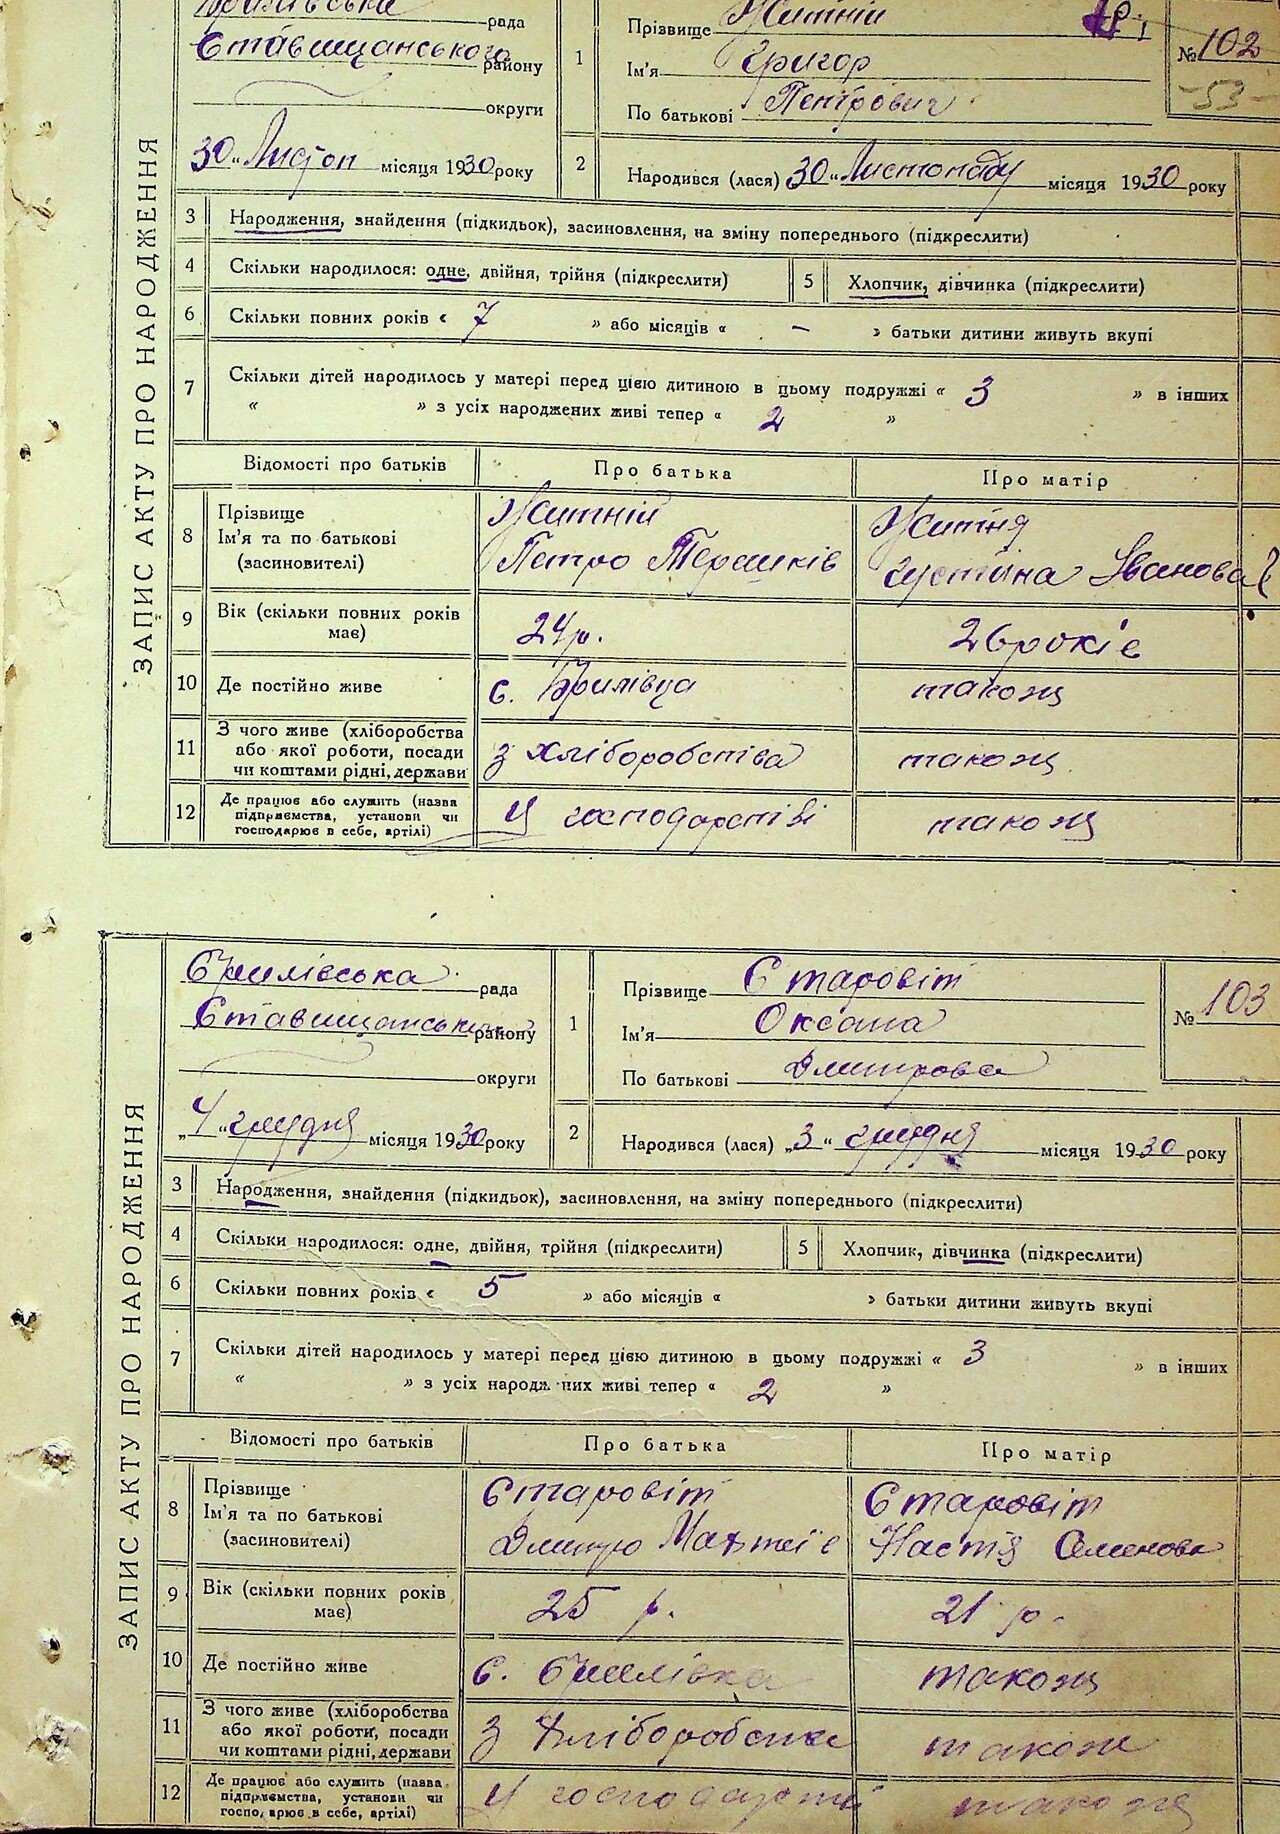 рада
Ставищанського району
округи
30 „ Листоп місяця 1930 року
1
Прізвище Житній
Ім'я Григор
По батькові Петрович
№ 102
-53-
2
Народився (лася) 30 „ Листопаду місяця 1930 року
ЗАПИС АКТУ ПРО НАРОДЖЕННЯ
3 Народження, знайдення (підкидьок), засиновлення, на зміну попереднього (підкреслити)
4 Скільки народилося: одне, двійня, трійня (підкреслити) 5 Хлопчик, дівчинка (підкреслити)
6 Скільки повних років « 7 » або місяців « – » батьки дитини живуть вкупі
7 Скільки дітей народилось у матері перед цією дитиною в цьому подружжі « 3 » в інших
« » з усіх народжених живі тепер « 2 »
Відомості про батьків Про батька Про матір
8 Прізвище Житній Житня
Ім'я та по батькові Петро Терешків Устина Іванова
(засиновителі)
9 Вік (скільки повних років має) 24 р. 26 років
10 Де постійно живе с. також
11 З чого живе (хліборобства або якої роботи, посади чи коштами рідні, держави з хліборобства також
12 Де працює або служить (назва підприємства, установи чи господарює в себе, артілі) У господарстві також
Брилівська рада
Ставищанського району
округи
„4 „ грудня місяця 1930 року
1
Прізвище Старовіт
Ім'я Оксана
По батькові Дмитрова
№ 103
2
Народився (лася) „3 „ грудня місяця 1930 року
ЗАПИС АКТУ ПРО НАРОДЖЕННЯ
3 Народження, знайдення (підкидьок), засиновлення, на зміну попереднього (підкреслити)
4 Скільки народилося: одне, двійня, трійня (підкреслити) 5 Хлопчик, дівчинка (підкреслити)
6 Скільки повних років « 5 » або місяців « » батьки дитини живуть вкупі
7 Скільки дітей народилось у матері перед цією дитиною в цьому подружжі « 3 » в інших
« » з усіх народжених живі тепер « 2 »
Відомості про батьків Про батька Про матір
8 Прізвище Старовіт Старовіт
Ім'я та по батькові Дмитро Настя Семенова
(засиновителі)
9 Вік (скільки повних років має) 25 р. 21 р.
10 Де постійно живе с. Брилівка також
11 З чого живе (хліборобства або якої роботи, посади чи коштами рідні, держави З хліборобства також
12 Де працює або служить (назва підприємства, установи чи господарює в себе, артілі) У також